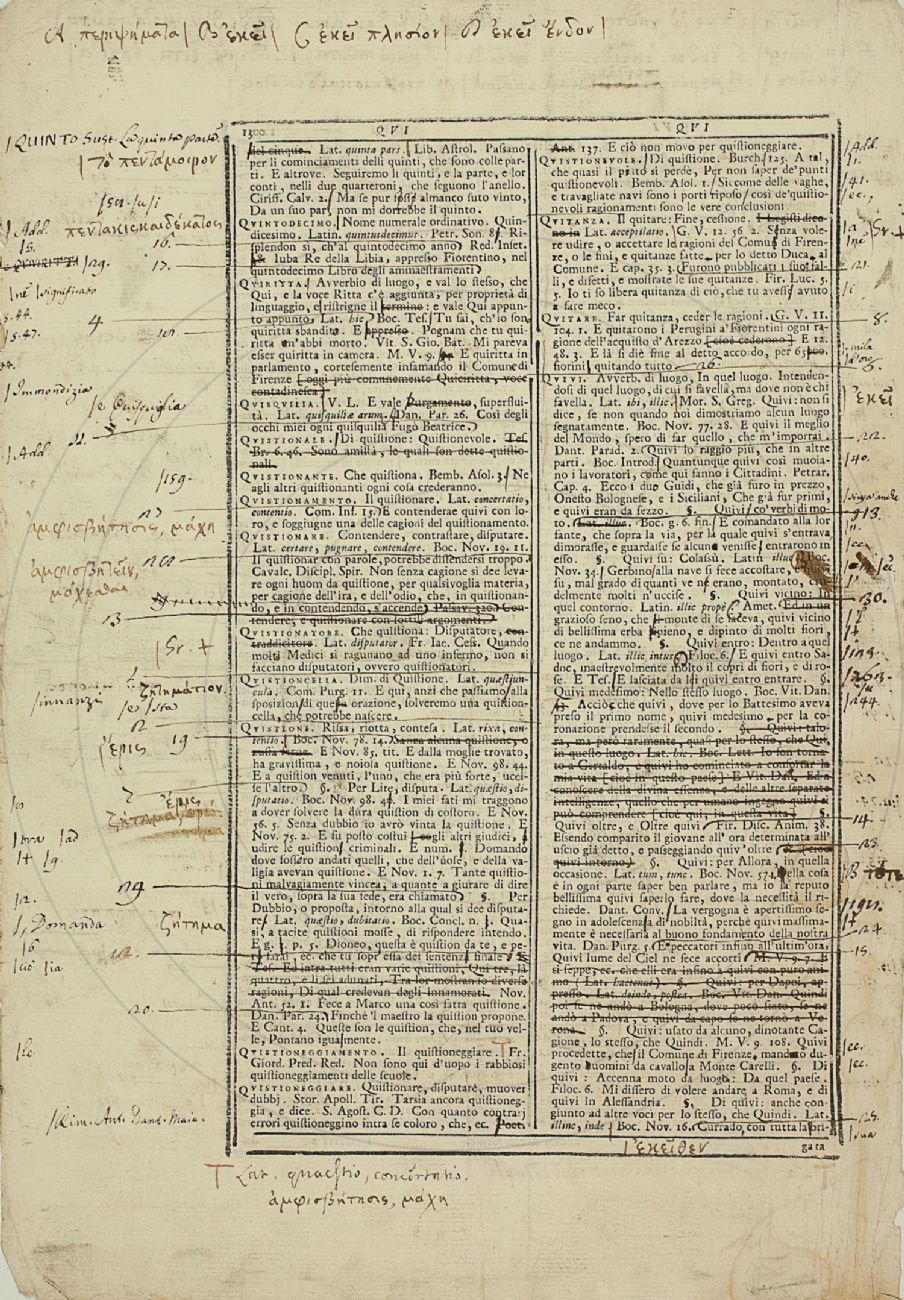 A περιψήματα | B ἐκεῖ | C ἐκεῖ πλησίον | D ἐκεῖ ἔνδον |
1300 QVI QVI
QUINTO Sust. La quinta parte.
Τὸ πεντάμοιρον
del cinque. Lat. quinta pars. Lib. Astrol. Passano
per li cominciamenti delli quinti, che sono colle par-
ti. E altrove. Seguiremo li quinti, e la parte, e lor
conti, nelli due quarteroni, che seguono l'anello.
Ciriff. Calv. 2. Ma se pur fosse almanco suto vinto,
Da un suo pari non mi dorrebbe il quinto.
πεντακιεκαιδέκατος
QVINTODECIMO. Nome numerale ordinativo. Quin-
dicesimo, Latin. quintusdecimus. Petr. Son. 8. Ri-
splendon sì, ch'al quintodecimo anno. Red. Inset.
Iuba Re della Libia, appresso Fiorentino, nel
quintodecimo Libro degli ammaestramenti
QVIRITTA. Avverbio di luogo, e val lo stesso, che
Qui, e la voce Ritta c'è aggiunta, per proprietà di
linguaggio, e ristrigne il termino: e vale Qui appun-
to appunto. Lat. hic. Boc. Tes. Tu sai, ch'io son
quiritta sbandito. E appresso. Pognam che tu qui-
ritta m'abbi morto. Vit. S. Gio. Bat. Mi pareva
esser quiritta in camera. M. V. 9. E quiritta in
parlamento, cortesemente infamando il Comune di
Firenze [oggi più comunemente Quiciritta, voce
contadinesca]
QVISQVILIA. V. L. E vale Purgamento, superflui-
tà. Lat. quisquiliæ arum. Dan. Par. 26. Così degli
occhi miei ogni quisquilia Fugò Beatrice.
QVISTIONALE. Di quistione: Quistionevole. Tes.
Br. 6. 46. Sono amistà, le quali son dette quistio-
nali.
QVISTIONANTE. Che quistiona. Bemb. Asol. 3. Ne
agli altri quistionanti ogni cosa crederanno.
QVISTIONAMENTO. Il quistionare. Lat. concertatio,
contentio. Com. Inf. 15. E contenderae quivi con lo-
ro, e soggiugne una delle cagioni del quistionamento.
QVISTIONARE. Contendere, contrastare, disputare.
Lat. certare, pugnare, contendere. Boc. Nov. 19. 11.
Il quistionar con parole, potrebbe distendersi troppo.
Cavalc. Discipl. Spir. Non senza cagione si dee leva-
re ogni huom da quistione, per qualsivoglia materia,
per cagione dell'ira, e dell'odio, che, in quistionan-
do, e in contendendo, s'accende. Passav. 320. Con-
tendere, e quistionare con sottili argomenti.
QVISTIONATORE. Che quistiona: Disputatore, con-
traddicitore. Lat. disputator. Fr. Iac. Cess. Quando
molti Medici si ragunano ad uno infermo, non si
facciano disputatori, ovvero quistionatori.
QVISTIONCELLA. Dim. di Quistione. Lat. quæstiun-
cula. Com. Purg. 11. E qui, anzi che passiamo alla
sposizion di questa orazione, solveremo una quistion-
cella, che potrebbe nascere.
QVISTIONE. Rissa, riotta, contesa. Lat. rixa, con-
tentio. Boc. Nov. 78. 14. Senza alcuna quistione, o
zuffa farne. E Nov. 83. tit. E dalla moglie trovato,
ha gravissima, e noiosa quistione. E Nov. 98. 44.
E a quistion venuti, l'uno, che era più forte, ucci-
se l'altro. §. Per Lite, disputa. Lat. quæstio, di-
sputatio. Boc. Nov. 98. 48. I miei fati mi traggono
a dover solvere la dura quistion di costoro. E Nov.
56. 5. Senza dubbio io avrò vinta la quistione. E
Nov. 75. 2. E su posto costui cogli altri giudici, a
udire le quistioni criminali. E num. Domando
dove fossero andati quelli, che dell'oste, e della va-
ligia avevan quistione. E Nov. 1. 7. Tante quistio-
ni malvagiamente vincea, a quante a giurare di dire
il vero, sopra la sua fede, era chiamato. §. Per
Dubbio, o proposta, intorno alla qual si dee disputa-
re. Lat. quæstio, dubitatio. Boc. Concl. n. Qua-
si, a tacite quistioni mosse, di rispondere intendo.
E g. p. 5. Dioneo, questa è quistion da te, e pe-
farai, ec. che tu sopr'essa dei sentenzia finale. E
Tes. Ed intra tutti eran varie quistioni, Qui tre, là
quattro, e li sei adunati, Tra lor mostran so diverse
ragioni, Di qual credevan degli Innamorati. Nov.
Ant. 52. 1. Fece a Marco una così fatta quistione.
Dan. Par. 24. Finchè 'l maestro la quistion propone.
E Cant. 4. Queste son le quistion, che, nel tuo vel-
le, Pontano igualmente.
QVISTIONEGGIAMENTO. Il quistioneggiare. Fr.
Giord. Pred. Red. Non sono qui d'uopo i rabbiosi
quistioneggiamenti delle scuole.
QVISTIONEGGIARE. Quistionare, disputare, muover
dubbj. Stor. Apoll. Tir. Tarsia ancora quistioneg-
gia, e dice. S. Agost. C. D. Con quanto contrarj
errori quistioneggino intra se coloro, che, ec. Poet.
Ant. 137. E ciò non movo per quistioneggiare.
QVISTIONEVOLE. Di quistione. Burch. 125. A tal,
che quasi il piato si perde, Per non saper de' punti
quistionevoli. Bemb. Asol. 1. Siccome delle vaghe,
e travagliate navi sono i porti riposo, così de quistio-
nevoli ragionamenti sono le vere conclusioni
QVITANZA. Il quitare: Fine, cessione. I Legisti dico-
no in Lat. acceptilatio. G. V. 12. 56. 2. Senza vole-
re udire, o accettare le ragioni del Comun di Firen-
ze, o le fini, e quitanze fatte per lo detto Duca al
Comune. E cap. 35. 3. Furono pubblicati i suoi fal-
li, e difetti, e mostrate le sue quitanze. Fir. Luc. 5.
5. Io ti fo libera quitanza di ciò, che tu avessi avuto
a fare meco.
QVITARE. Far quitanza, ceder le ragioni. G. V. 11.
104. 1. E quitarono i Perugini a' Fiorentini ogni ra-
gione dell'acquisto d'Arezzo [cioè cederono] E 12.
48. 3. E là si diè fine al detto accordo, per 65000.
fiorini, quitando tutto
QVIVI. Avverb. di luogo, In quel luogo. Intenden-
dosi di quel luogo, di cui si favella, ma dove non è chi
favella. Lat. ibi, illic. Mor. S. Greg. Quivi: non si
dice, se non quando noi dimostriamo alcun luogo
segnatamente. Boc. Nov. 77. 28. E quivi il meglio
del Mondo, spero di far quello, che m'imporrai.
Dant. Parad. 2. Quivi lo raggio più, che in altre
parti. Boc. Introd. Quantunque quivi così muoia-
no i lavoratori, come qui fanno i Cittadini. Petrar.
Cap. 4. Ecco i duo Guidi, che già furo in prezzo,
Onesto Bolognese, e i Siciliani, Che già fur primi,
e quivi eran da sezzo. §. Quivi, co' verbi di mo-
to. Lat. illuc. Boc. g. 6. fin. E comandato alla lor
fante, che sopra la via, per la quale quivi s'entrava
dimorasse, e guardasse se alcuno venisse, entrarono in
esso. §. Quivi su: Colassù. Latin illuc. Boc.
Nov. 34. Gerbino, alla nave si fece accostare,
su, mal grado di quanti ve n'erano, montato, cru-
delmente molti n'uccise. §. Quivi vicino: In
quel contorno. Latin. illic propè. Amet. Ed in un
grazioso seno, che il monte di se faceva, quivi vicino
di bellissima erba ripieno, e dipinto di molti fiori,
ce ne andammo. §. Quivi entro: Dentro a quel
luogo. Lat. illic intus. Filoc. 6. E quivi entro Sa-
doc, maestrevolmente molto il coprì di fiori, e di ro-
se. E Tes. E lasciata da lei quivi entro entrare. §.
Quivi medesimo: Nello stesso luogo. Boc. Vit. Dan.
Acciò che quivi, dove per lo Battesimo aveva
preso il primo nome, quivi medesimo per la co-
ronazione prendesse il secondo. §. Quivi talo-
ra, ma però raramente, quasi per lo stesso, che Qui,
In questo luogo. Lat. hic. Boc. Lett. Io son torna-
to a Certaldo, e quivi ho cominciato a confortar la
mia vita [cioè in questo paese] E Vit. Dan. Ed a
conoscere della divina essenzia, e delle altre separate
intelligenze, quello che per umano ingegno quivi si
può comprendere [cioè qui, in questa vita] §.
Quivi oltre, e Oltre quivi. Fir. Disc. Anim. 38.
Essendo comparito il giovane all'ora determinata all'
uscio già detto, e passeggiando quiv'oltre
quivi intorno) §. Quivi: per Allora, in quella
occasione. Lat. tum, tunc. Boc. Nov. 57. Bella cosa
è in ogni parte saper ben parlare, ma io la reputo
bellissima quivi saperlo fare, dove la necessità il ri-
chiede. Dant. Conv. La vergogna è apertissimo se-
gno in adolescenza di nobiltà, perchè quivi massima-
mente è necessaria al buono fondamento della nostra
vita. Dan. Purg. 5. E peccatori infino all'ultim'ora,
Quivi lume del Ciel ne fece accorti. M. V. 9. 7. E
si seppe, ec. che elli era infino a quivi con puro ani-
mo (Lat. hactenus) §. Quivi: per Dapoi, ap-
presso. Lat. deinde, postea. Boc. Vit. Dan. Quindi
poi se ne andò a Bologna, dove poco stato, se ne
andò a Padova, e quivi da capo se ne tornò a Ve-
rona. §. Quivi: usato da alcuno, dinotante Ca-
gione, lo stesso, che Quindi. M. V. 9. 108. Quivi
procedette, che il Comune di Firenze, mandato du-
gento uomini da cavallo a Monte Carelli. §. Di
quivi: Accenna moto da luogo: Da quel paese.
Filoc. 6. Mi dissero di volere andare a Roma, e di
quivi in Alessandria. §. Di quivi: anche con-
giunto ad altre voci per lo stesso, che Quindi. Lat.
illinc, inde. Boc. Nov. 16. Currado, con tutta la bri-
gata
ἐκεῖθεν
Immondizia
se Quisquiglia
ἀμφισβήτησις, μάχη
ἀμφισβητεῖν,
μάχεσθαι
ζητημάτιον
ἔρις
Domanda
ζήτημα
ἐκεῖ
τότε
Rim. Ant. Dant. Maia.
T Lat. quaestio, concertatio.
ἀμφισβήτησις, μάχη